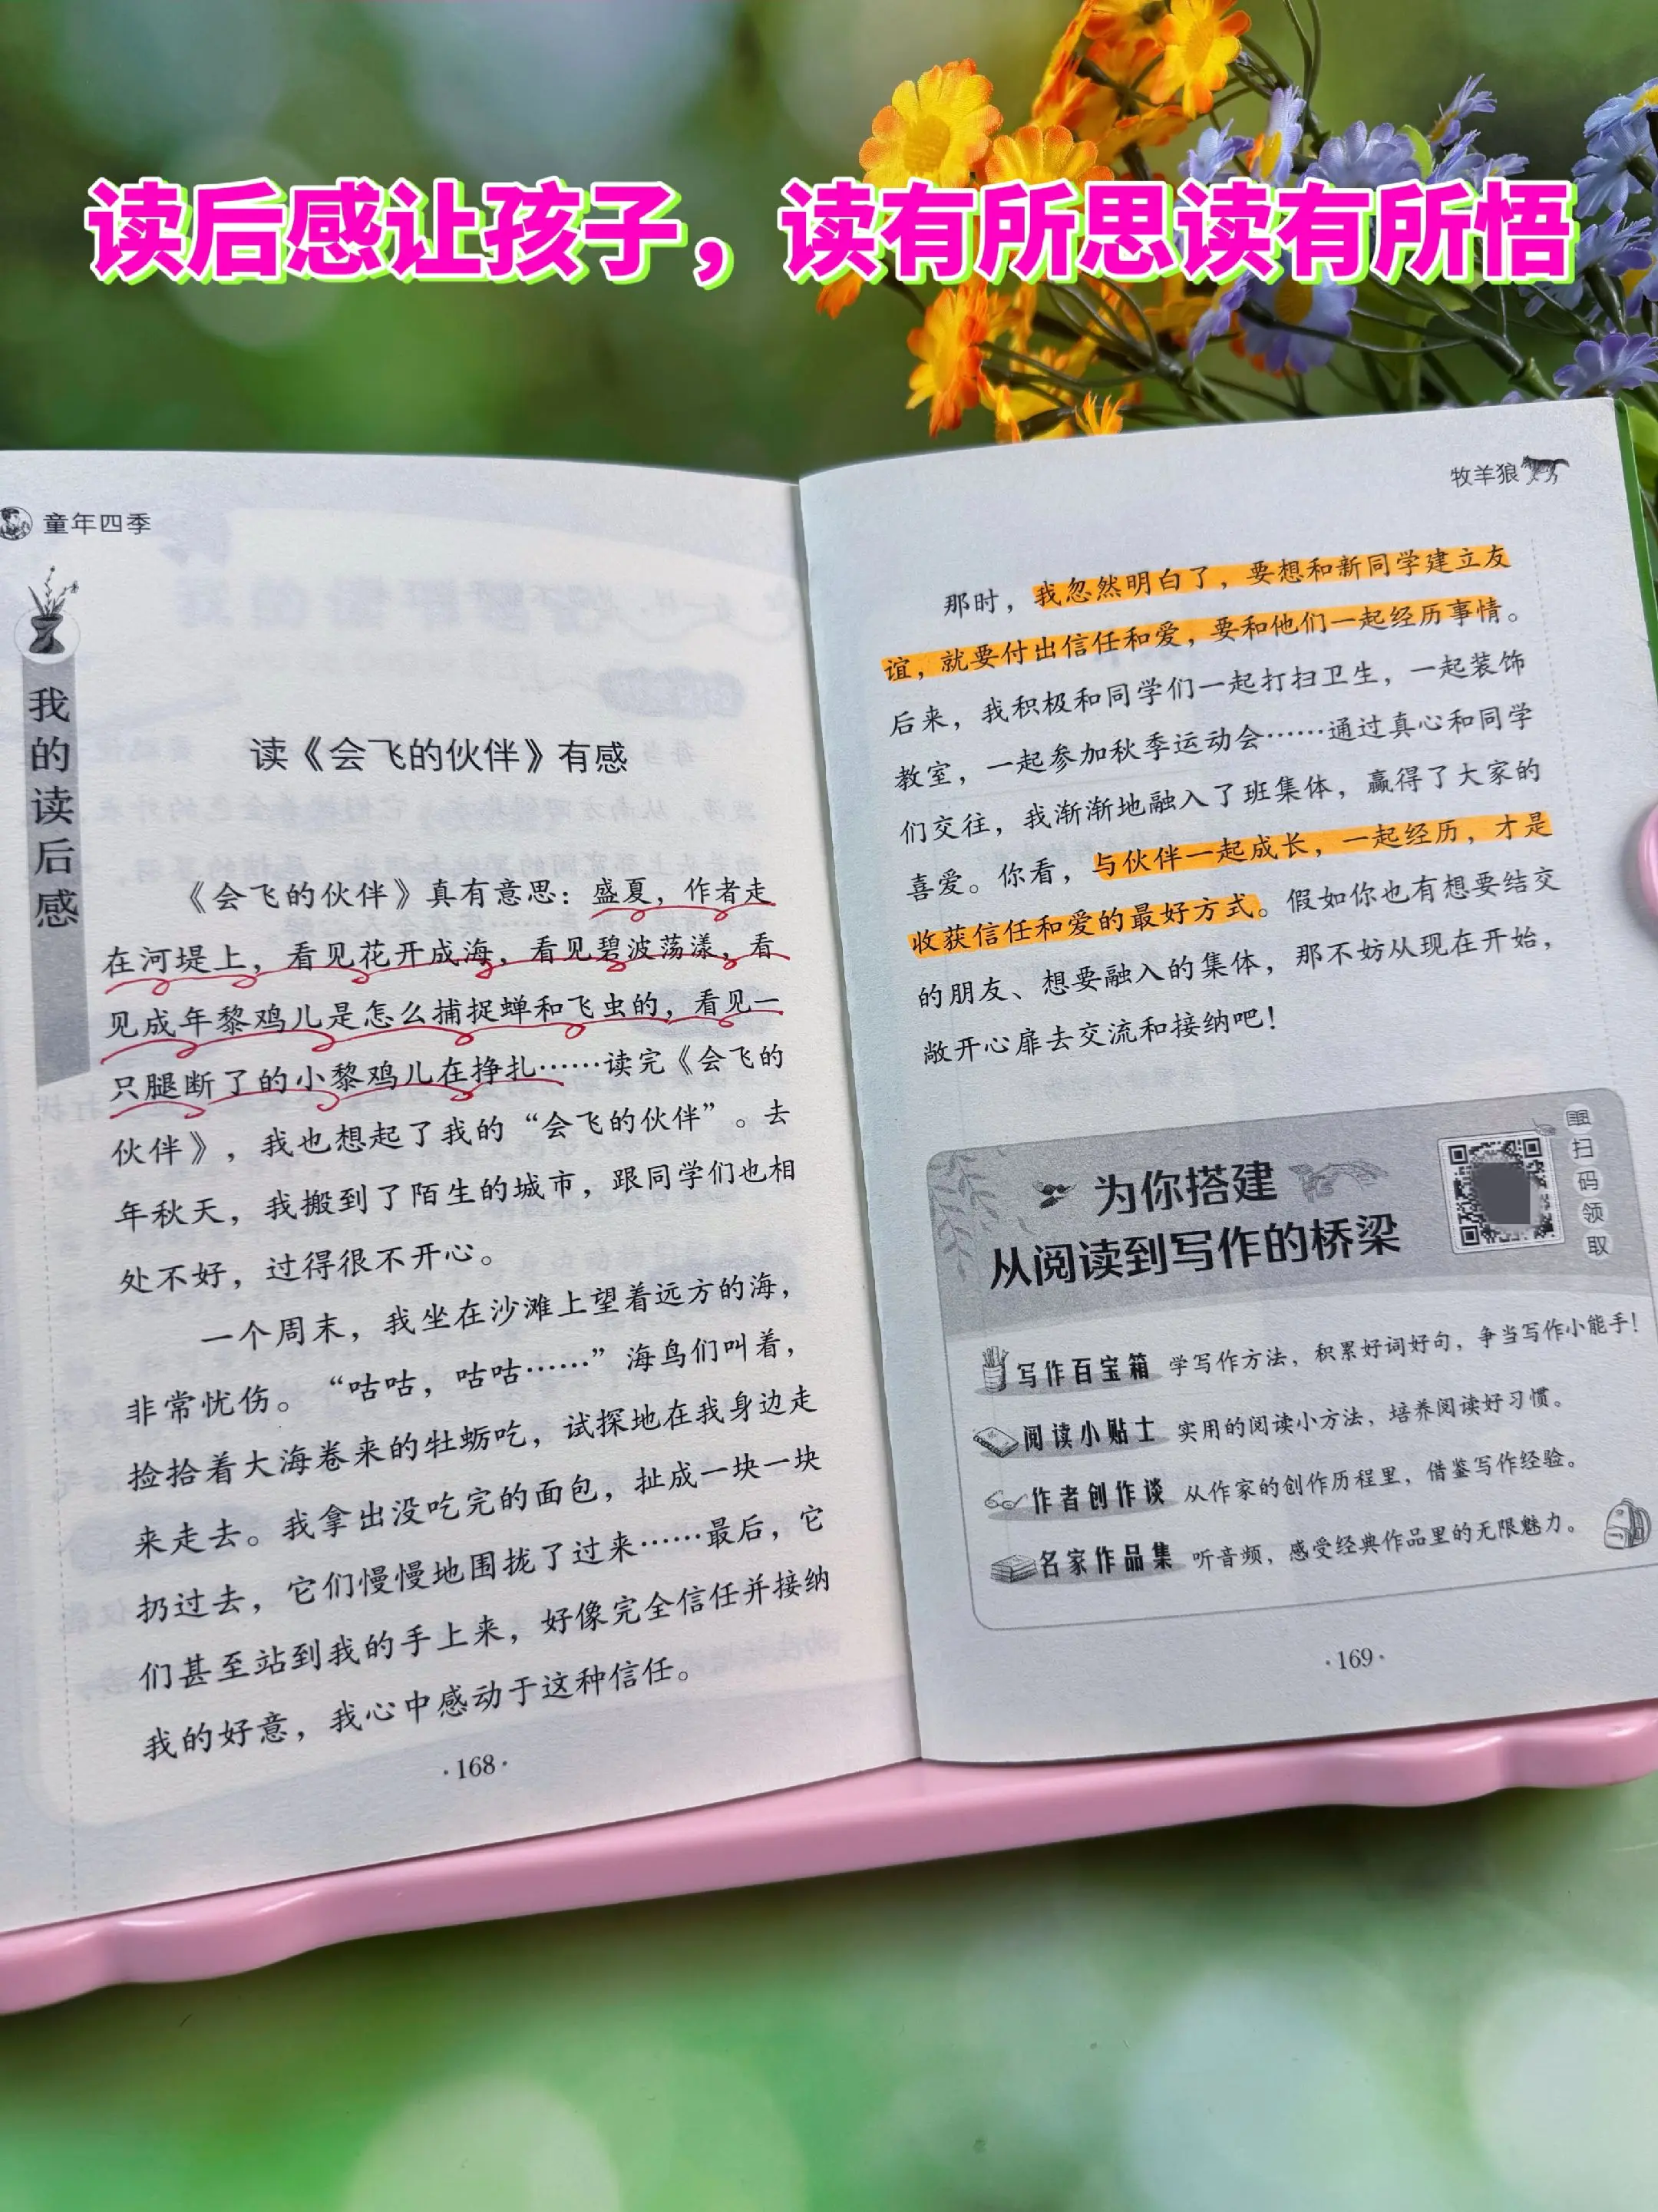 读后感让孩子，读有所思读有所悟
童年四季
我的读后感
读《会飞的伙伴》有感
《会飞的伙伴》真有意思：盛夏，作者走
在河堤上，看见花开成海，看见碧波荡漾，看
见成年黎鸡儿是怎么捕捉蝉和飞虫的，看见一
只腿断了的小黎鸡儿在挣扎……读完《会飞的
伙伴》，我也想起了我的“会飞的伙伴”。去
年秋天，我搬到了陌生的城市，跟同学们也相
处不好，过得很不开心。
一个周末，我坐在沙滩上望着远方的海，
非常忧伤。“咕咕，咕咕……”海鸟们叫着，
捡拾着大海卷来的牡蛎吃，试探地在我身边走
来走去。我拿出没吃完的面包，扯成一块一块
扔过去，它们慢慢地围拢了过来……最后，它
们甚至站到我的手上来，好像完全信任并接纳
我的好意，我心中感动于这种信任。
·168·
牧羊狼
那时，我忽然明白了，要想和新同学建立友
谊，就要付出信任和爱，要和他们一起经历事情。
后来，我积极和同学们一起打扫卫生，一起装饰
教室，一起参加秋季运动会……通过真心和同学
们交往，我渐渐地融入了班集体，赢得了大家的
喜爱。你看，与伙伴一起成长，一起经历，才是
收获信任和爱的最好方式。假如你也有想要结交
的朋友、想要融入的集体，那不妨从现在开始，
敞开心扉去交流和接纳吧！
为你搭建
从阅读到写作的桥梁
扫码领取
写作百宝箱 学写作方法，积累好词好句，争当写作小能手！
阅读小贴士 实用的阅读小方法，培养阅读好习惯。
作者创作谈 从作家的创作历程里，借鉴写作经验。
名家作品集 听音频，感受经典作品里的无限魅力。
·169·